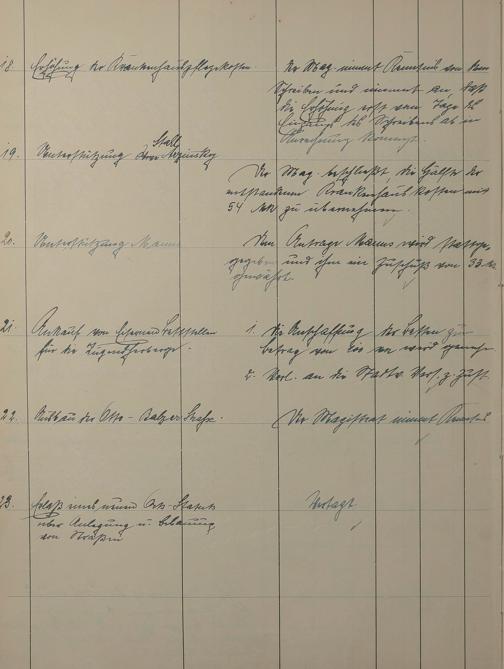 18. Erhöhung der Krankenhauspflegekosten.
Der Mag. nimmt Kenntnis von dem
Schreiben und nimmt an, daß
die Erhöhung erst vom Tage des
Eingangs des Schreibens ab in
Anrechnung kommt.
19. Unterstützung
Der Mag. beschließt, die Hälfte der
entstandenen Krankenhauskosten mit
54 Mk zu übernehmen.
20. Unterstützung Manns
Dem Antrage Manns wird
gegeben und ihm ein Zuschuß von 33 M
gewährt.
21. Ankauf von eisernen Bettstellen
für die Jugendherberge.
1. die Anschaffung der Betten zum
Betrag von
2. Vorl. an die Stadtv. Vers. z. Zust.
22. Ausbau der Otto-Balzer Straße.
Der Magistrat nimmt Kenntnis
23. Erlaß eines neuen Orts-Statuts
über Anlegung u. Bebauung
von Straßen
Vertagt